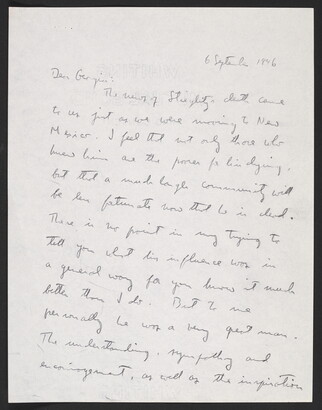 6 September 1946
Dear Georgia:
The news of Stieglitz's death came
to us just as we were moving to New
Mexico. I feel that not only those who
knew him are the poorer for his dying,
but that a much larger community will
be less fortunate now that he is dead.
There is no point in my trying to
tell you what his influence was in
a general way for you know it much
better than I do. But to me
personally he was a very great man.
The understanding, sympathy and
encouragement, as well as the inspiration